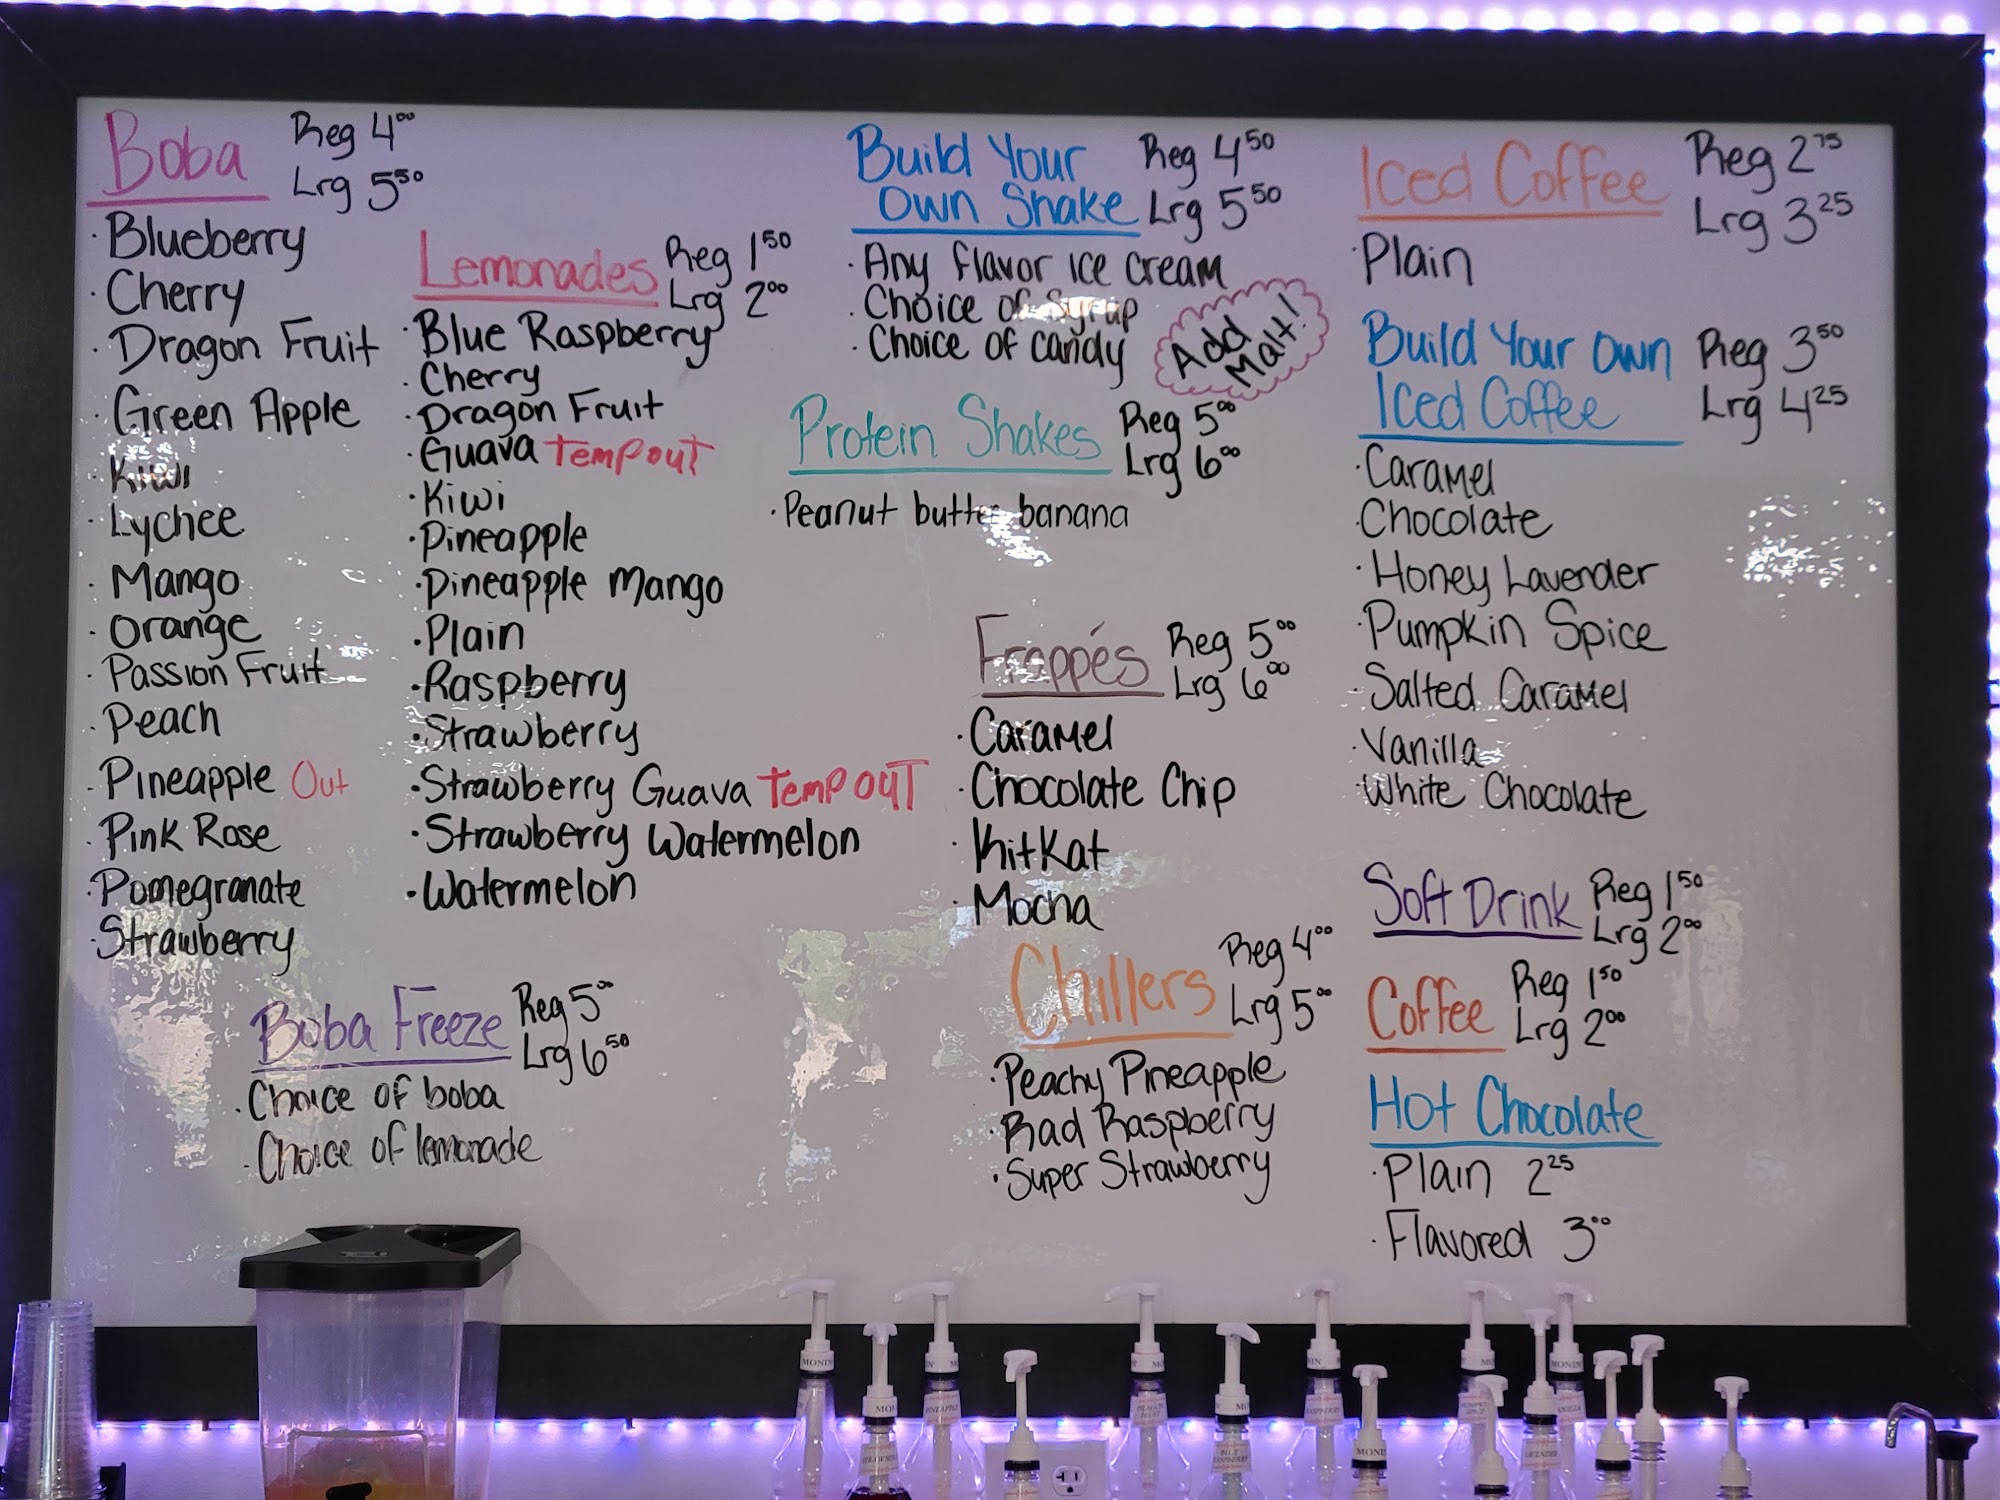 Boba Reg 4⁰⁰
Lrg 5⁵⁰
· Blueberry
· Cherry
· Dragon Fruit
· Green Apple
· Kiwi
· Lychee
· Mango
· Orange
· Passion Fruit
· Peach
· Pineapple Out
· Pink Rose
· Pomegranate
· Strawberry
Lemonades Reg 1⁵⁰
Lrg 2⁰⁰
· Blue Raspberry
· Cherry
· Dragon Fruit
· Guava Temp out
· Kiwi
· Pineapple
· Pineapple Mango
· Plain
· Raspberry
· Strawberry
· Strawberry Guava Temp out
· Strawberry Watermelon
· Watermelon
Boba Freeze Reg 5⁰⁰
Lrg 6⁵⁰
· Choice of boba
· Choice of lemonade
Build Your Reg 4⁵⁰
Own Shake Lrg 5⁵⁰
· Any flavor ice cream
· Choice of Syrup
· Choice of candy
Add
Malt!
Protein Shakes Reg 5⁰⁰
Lrg 6⁰⁰
· Peanut butter banana
Frappés Reg 5⁰⁰
Lrg 6⁰⁰
· Caramel
· Chocolate Chip
· KitKat
· Mocha
Chillers Reg 4⁰⁰
Lrg 5⁰⁰
· Peachy Pineapple
· Rad Raspberry
· Super Strawberry
Iced Coffee Reg 2⁷⁵
Lrg 3²⁵
· Plain
Build Your Own Reg 3⁵⁰
Iced Coffee Lrg 4²⁵
· Caramel
· Chocolate
· Honey Lavender
· Pumpkin Spice
· Salted Caramel
· Vanilla
· White Chocolate
Soft Drink Reg 1⁵⁰
Lrg 2⁰⁰
Coffee Reg 1⁵⁰
Lrg 2⁰⁰
Hot Chocolate
· Plain 2²⁵
· Flavored 3⁰⁰
MONIN